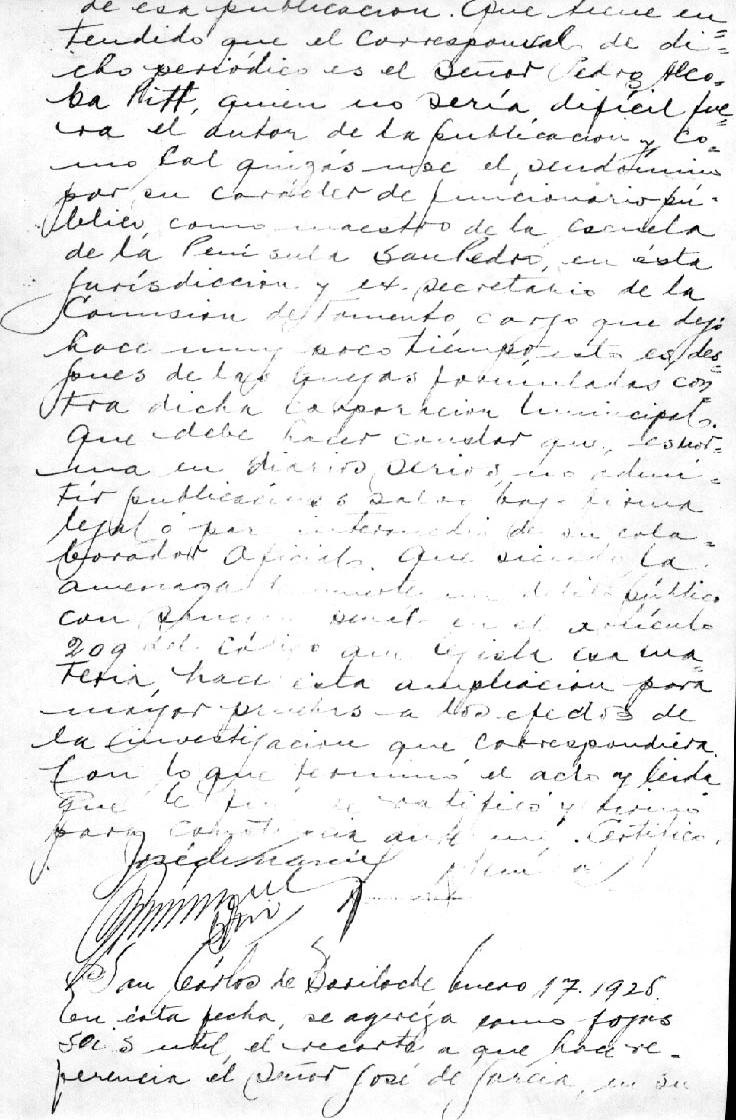 de esa publicacion. Que tiene en=
tendido que el corresponsal de di=
cho periódico es el Señor Pedro Alco=
ba Pitt, quien no sería difícil fue=
ra el autor de la publicacion y co=
mo tal quizás use el seudónimo
por su carácter de funcionario pú=
blico, como maestro de la escuela
de la Península San Pedro, en ésta
jurisdiccion y ex-secretario de la
Comision de Fomento cargo que dejó
hace muy poco tiempo, esto es, des=
pues de las quejas formuladas con
tra dicha corporacion
Que debe hacer constar que, es nor=
ma en diarios serios, no admi=
tir publicaciones salvo bajo firma
legal ó por intermedio de su cola=
borador oficial. Que siendo la
amenaza de muerte un delito público
con sancion penal en el artículo
209 del Código que legisla esa ma=
teria, hace ésta ampliacion para
mayor prueba a los efectos de
la investigacion que correspondiera.
Con lo que terminó el acto y leida
que le fué se ratificó y firmó
para constancia ante mí. Certifico.
San Cárlos de Bariloche Enero 17.1926.
En ésta fecha, se agrega como fojas
seis util, el recorte a que hace re=
ferencia el Señor José de García, en su